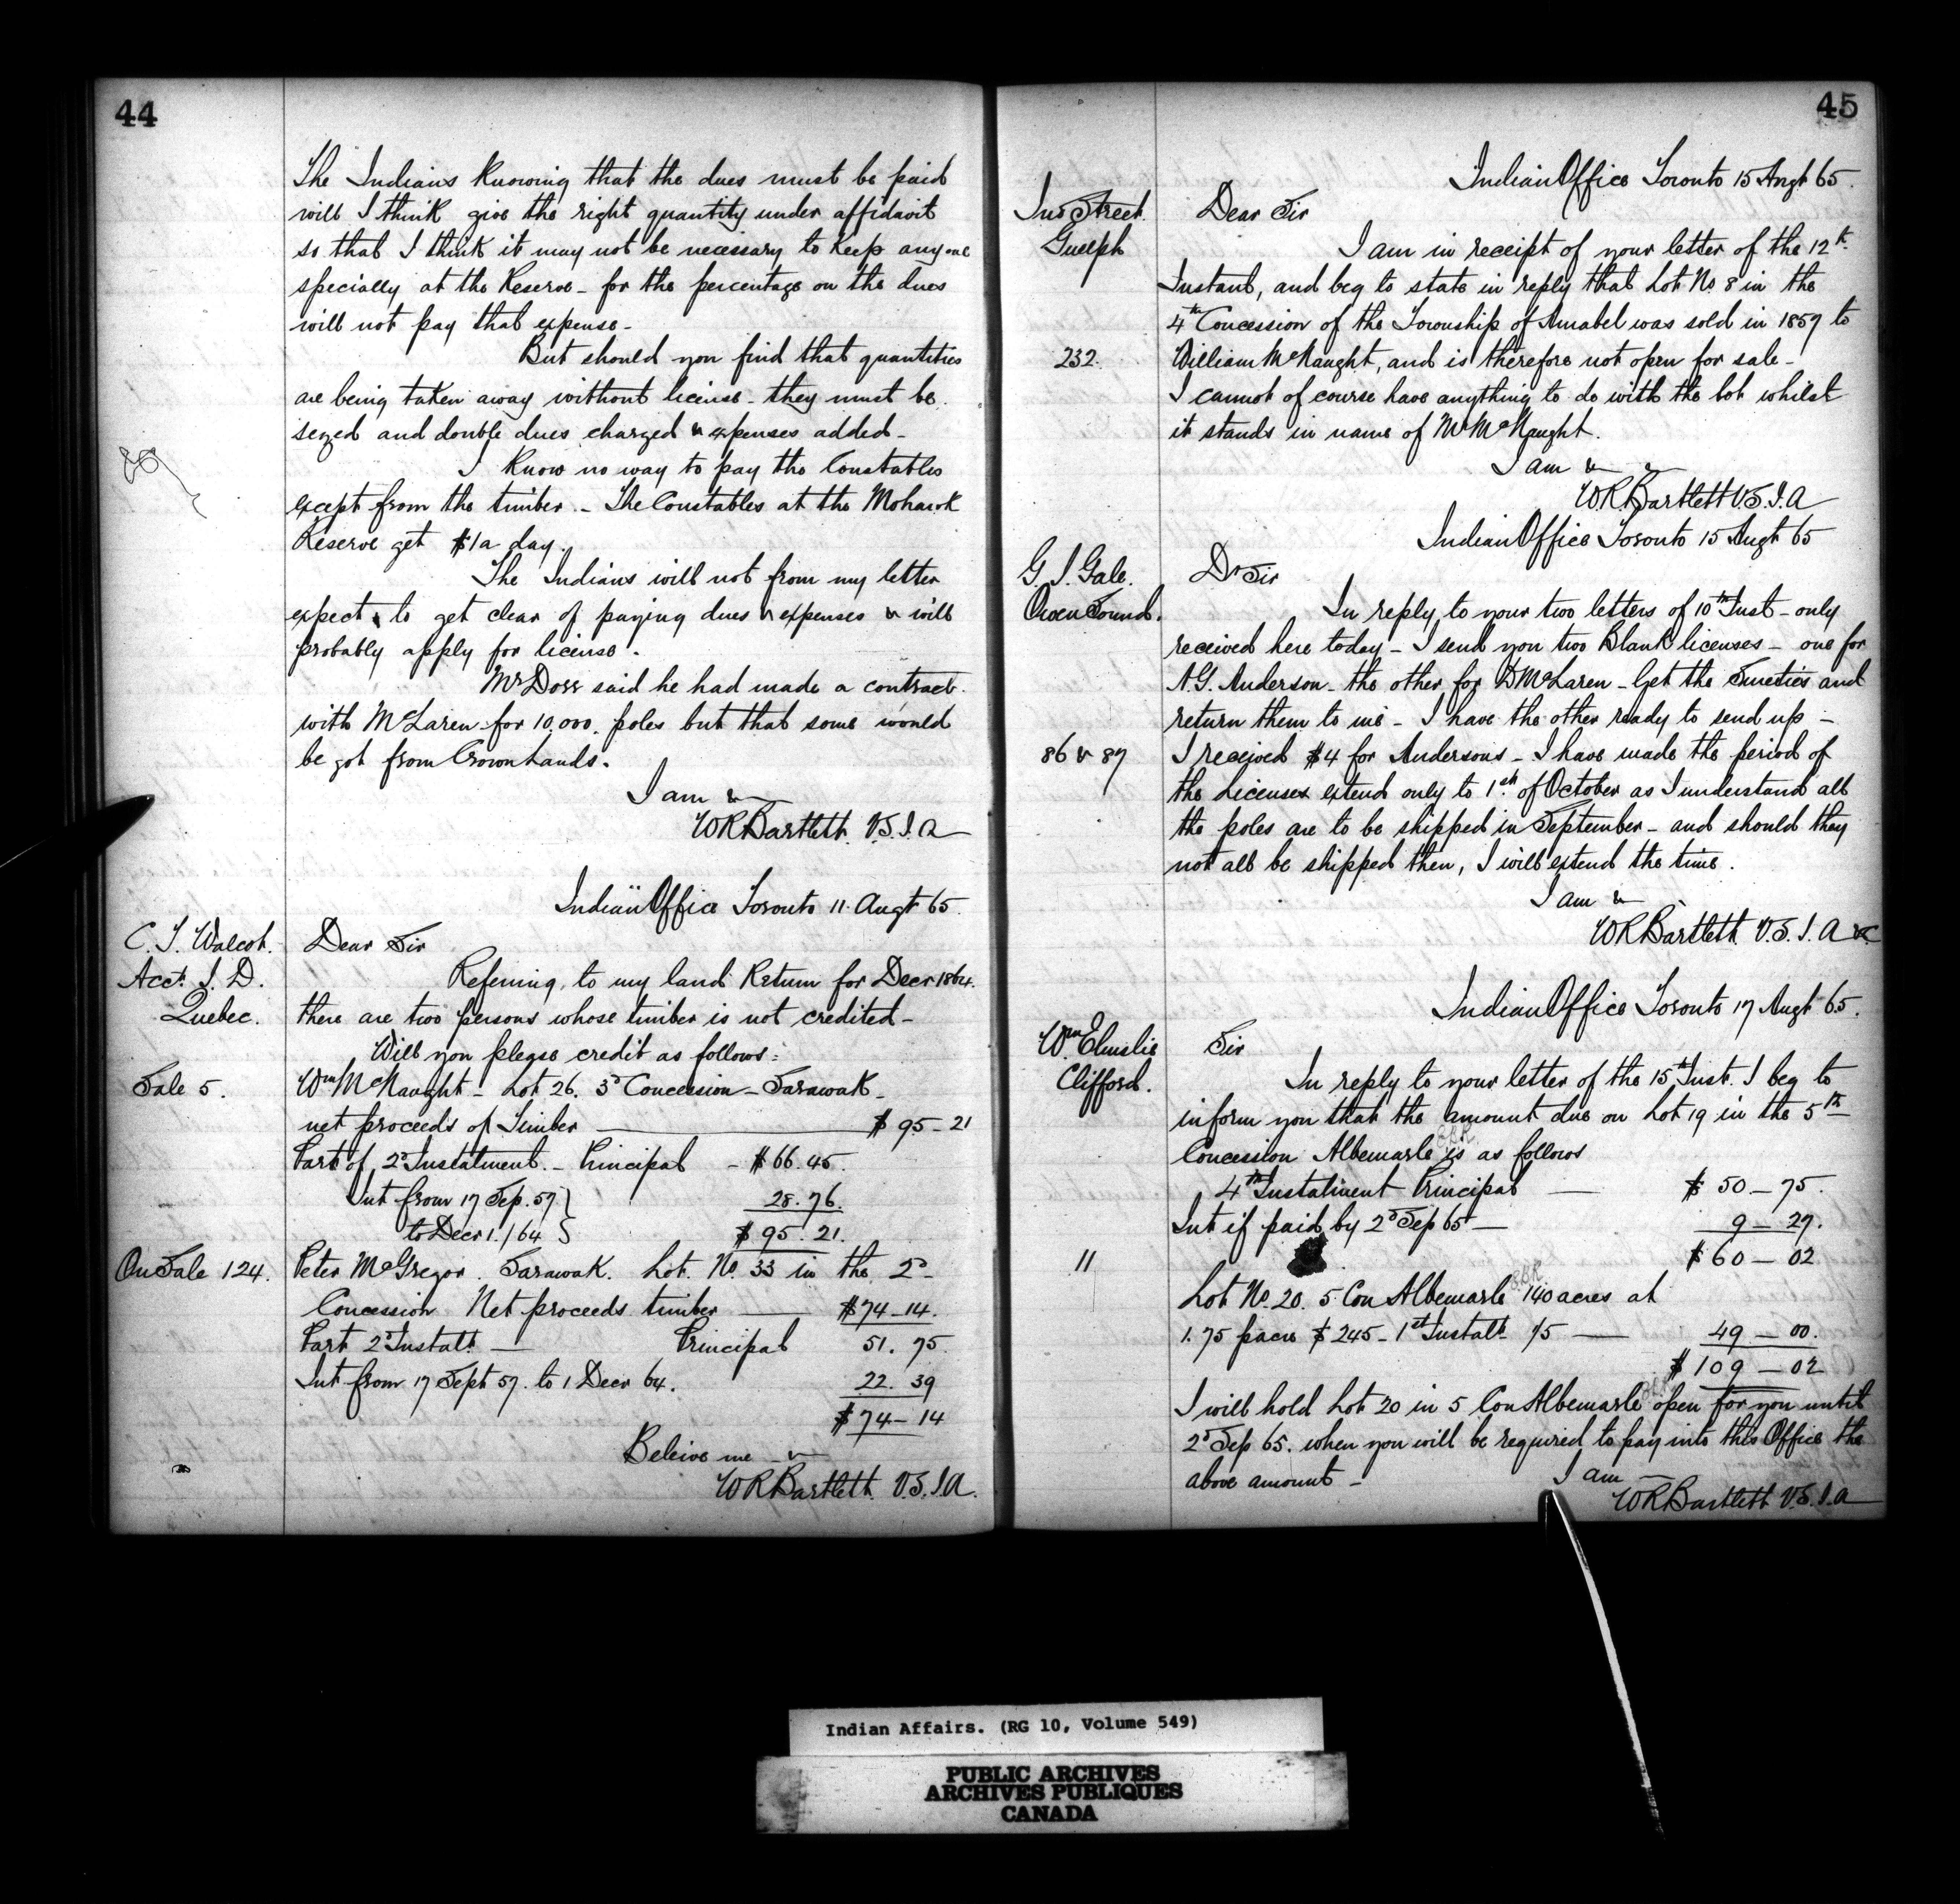 44
The Indians knowing that the dues must be paid
will I think give the right quantity under affidavit
so that I think it may not be necessary to keep any one
specially at the Reserve - for the percentage on the dues
will not pay that expense -
But should you find that quantities
are being taken away without license - they must be
seized and double dues charged & expenses added -
I know no way to pay the Constables
except from the timber - The Constables at the Mohawk
Reserve get $1 a day.
The Indians will not from my letter
expect to get clear of paying dues & expenses & will
probably apply for license.
Mr Doss said he had made a contract
with McLaren for 10,000 poles but that some would
be got from Crown Lands.
I am &
WRBartlett V.S.I.A
Indian Office Toronto 11 Augt 65
C. T. Walcot.
Dear Sir
Acct. I. D.
Quebec.
Referring to my land Return for Decr 1864.
there are two persons whose timber is not credited -
Will you please credit as follows:
Sale 5.
Wm McNaught - Lot 26. 3d Concession - Sarawak -
net proceeds of Timber $95-21
Part of 2d Instalment - Principal - $66.45.
Int from 17 Sep. 57 }
28.76.
to Decr 1. /64 }
$95.21.
On Sale 124.
Peter McGregor. Sarawak. Lot. No. 33 in the 2d
Concession Net proceeds timber $74-14.
Part 2d Instalt - Principal 51.75.
Int from 17 Sept 57. to 1 Decr 64. 22.39
$74-14
Beleive me &
WRBartlett. V.S.I.A.
45
Indian Office Toronto 15 Augt 65.
Jno Street.
Guelph
Dear Sir
I am in receipt of your letter of the 12th
Instant, and beg to state in reply that Lot No. 8 in the
4th Concession of the Township of Amabel was sold in 1857 to
232.
William McNaught, and is therefore not open for sale -
I cannot of course have anything to do with the lot whilst
it stands in name of Mr McNaught.
I am & &
WRBartlett V.S.I.A
Indian Office Toronto 15 Augt 65
G. J. Gale.
Owen Sound.
Dr Sir
In reply to your two letters of 10th Inst - only
received here today - I send you two Blank licenses - one for
A.G. Anderson - the other for D McLaren - Get the Sureties and
return them to me - I have the other ready to send up -
86 & 87
I received $4 for Andersons - I have made the period of
the Licenses extend only to 1st of October as I understand all
the poles are to be shipped in September - and should they
not all be shipped then, I will extend the time.
I am &
WRBartlett V.S.I.A
Indian Office Toronto 17 Augt 65.
Wm Elmslie
Clifford.
Sir
In reply to your letter of the 15th Inst. I beg to
inform you that the amount due on Lot 19 in the 5th
Concession Albemarle is as follows
4th Instalment Principal - $50-75.
Int if paid by 2d Sep 65 - 9-27.
11
$60-02
Lot No. 20. 5 Con Albemarle 140 acres at
1.75 p acre $245 - 1st Instalt 1/5 - 49-00.
$109-02
I will hold Lot 20 in 5 Con Albemarle open for you until
2d Sep 65. when you will be required to pay into this Office the
above amount -
I am
WRBartlett V.S.I.A
Indian Affairs. (RG 10, Volume 549)
PUBLIC ARCHIVES
ARCHIVES PUBLIQUES
CANADA